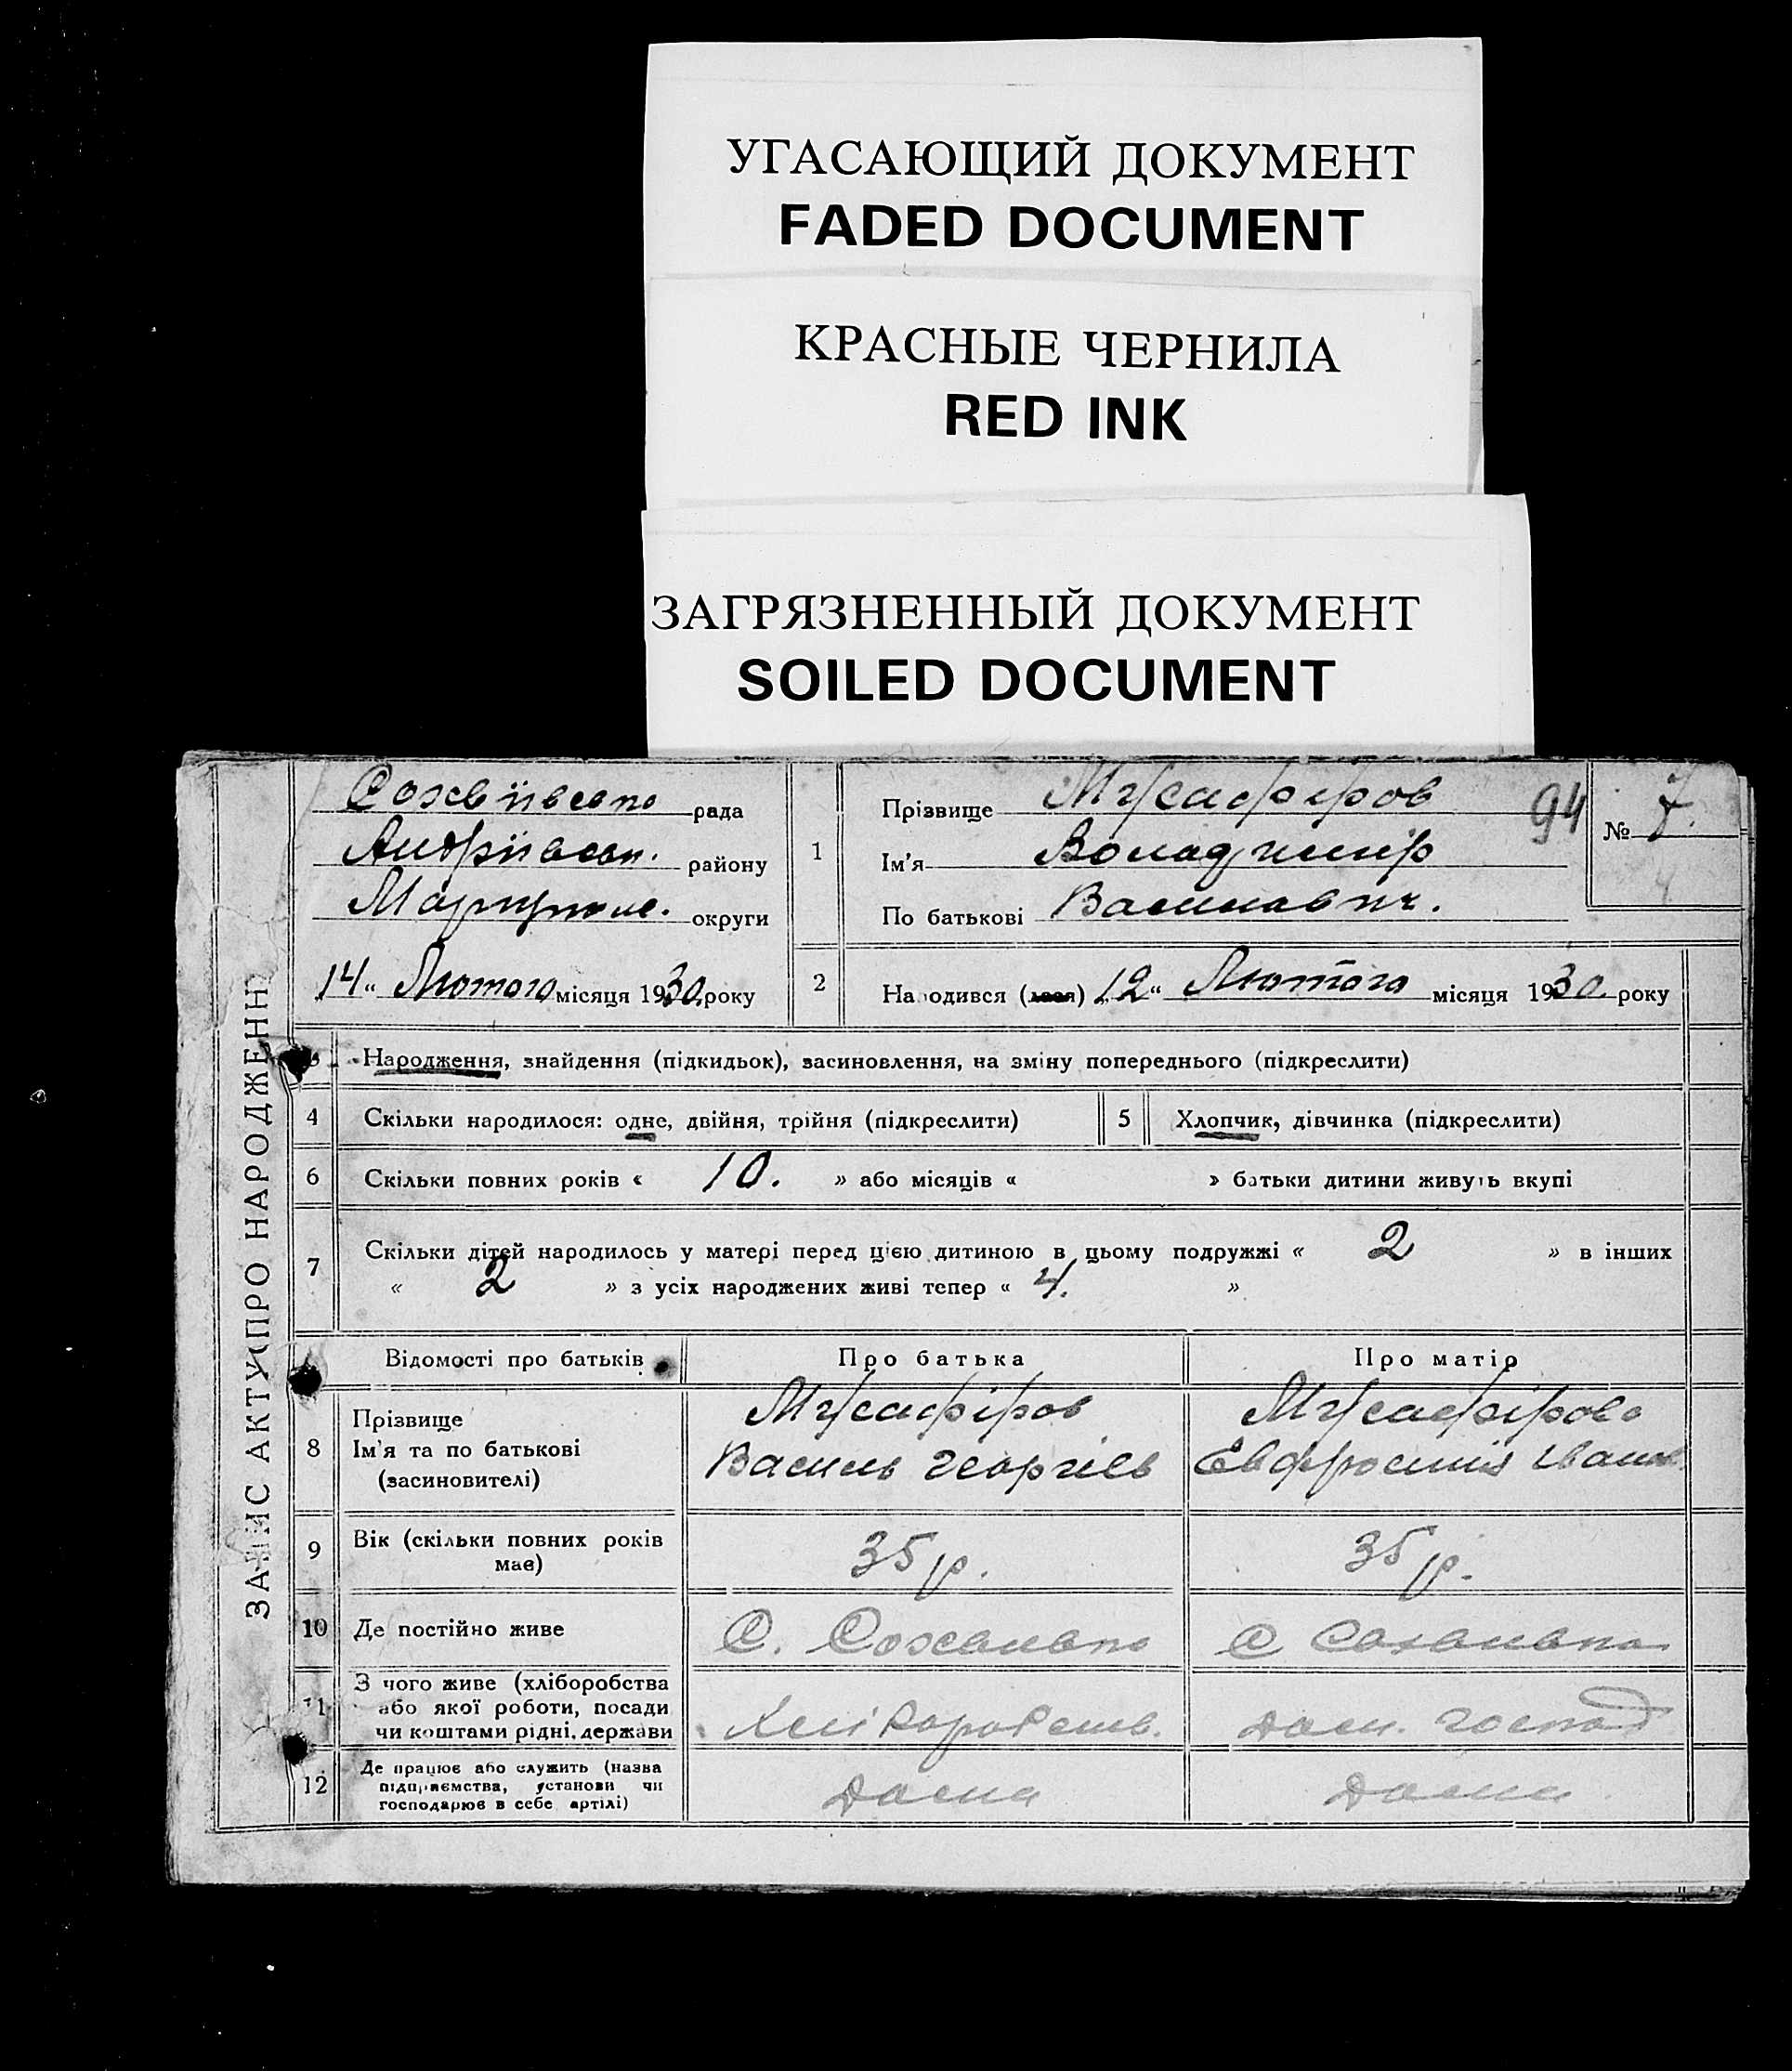 УГАСАЮЩИЙ ДОКУМЕНТ
FADED DOCUMENT
КРАСНЫЕ ЧЕРНИЛА
RED INK
ЗАГРЯЗНЕННЫЙ ДОКУМЕНТ
SOILED DOCUMENT
ЗАПИС АКТУ ПРО НАРОДЖЕНН
рада
Андріївськ. району
Маріупол. округи
14 " Лютого місяця 1930 року
1
Прізвище Мусафіров
94
№ 7.
Ім'я Володимир
По батькові Василович.
2
Народився (лася) „12 " Лютого місяця 1930. року
3 Народження, знайдення (підкидьок), засиновлення, на зміну попереднього (підкреслити)
4 Скільки народилося: одне, двійня, трійня (підкреслити)
5 Хлопчик, дівчинка (підкреслити)
6 Скільки повних років « 10. » або місяців « » батьки дитини живуть вкупі
7 Скільки дітей народилось у матері перед цією дитиною в цьому подружжі « 2 » в інших
« 2 » з усіх народжених живі тепер « 4. »
Відомості про батьків Про батька Про матір
8 Прізвище Мусафіров Мусафірова
Ім'я та по батькові Василь Георгіев Евфросинія Іванов
(засиновителі)
9 Вік (скільки повних років має) 35 р. 35 р.
10 Де постійно живе С. С
11 З чого живе (хліборобства
або якої роботи, посади
чи коштами рідні, держави Хліборобств. дом. господ
12 Де працює або служить (назва
підприємства, установи чи
господарює в себе артілі) дома дома